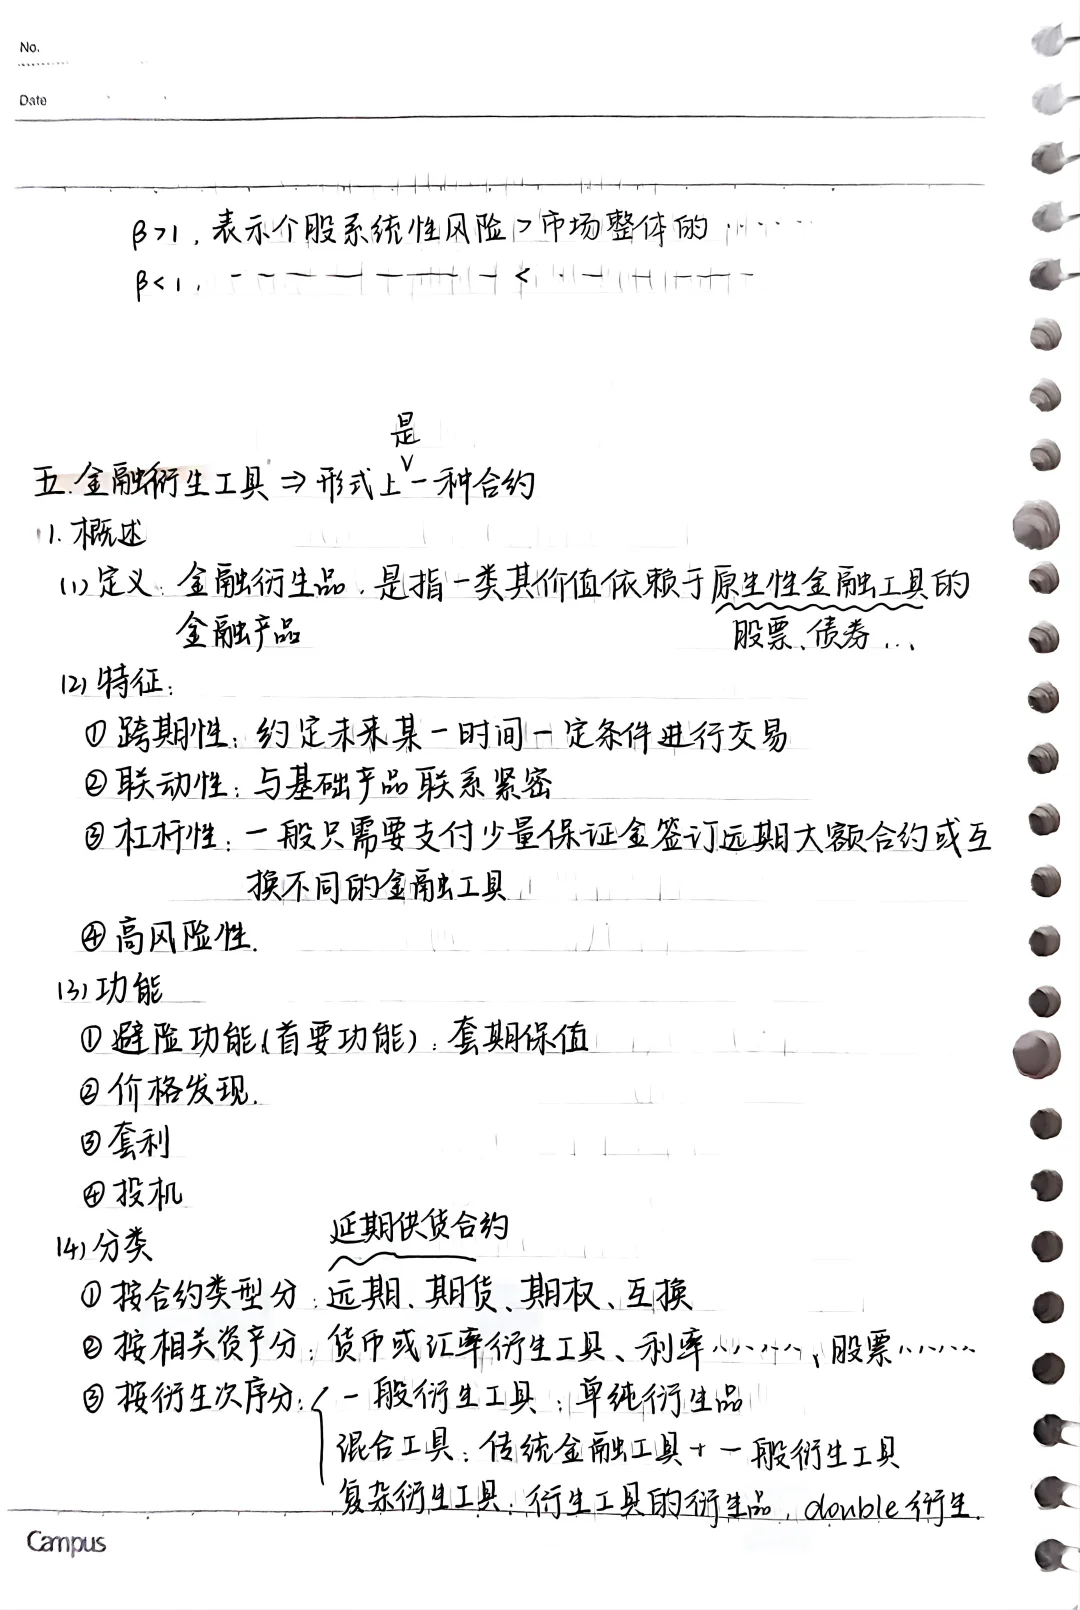 No.
Date
β>1，表示个股系统性风险>市场整体的……
β<1，————————<——————
是
五.金融衍生工具⇒形式上一种合约
1.概述
(1)定义：金融衍生品，是指一类其价值依赖于原生性金融工具的
金融产品
股票、债券...、
(2)特征：
①跨期性：约定未来某一时间一定条件进行交易
②联动性：与基础产品联系紧密
③杠杆性：一般只需要支付少量保证金签订远期大额合约或互
换不同的金融工具
④高风险性.
(3)功能
①避险功能(首要功能)：套期保值
②价格发现.
③套利
④投机
延期供货合约
(4)分类
①按合约类型分：远期、期货、期权、互换
②按相关资产分：货币或汇率衍生工具、利率……、股票……
③按衍生次序分：一般衍生工具：单纯衍生品
混合工具：传统金融工具+一般衍生工具
复杂衍生工具：衍生工具的衍生品，double衍生.
Campus